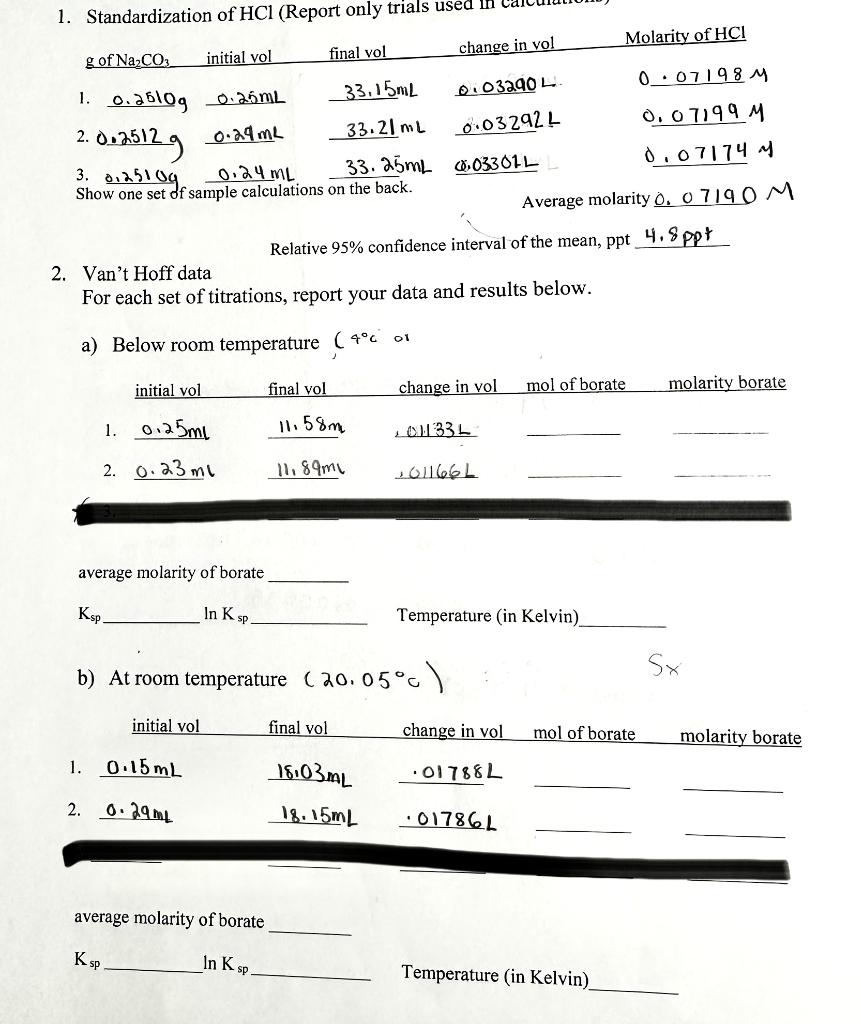 1. Standardization of HCl (Report only trials used in
g of Na₂CO₃ initial vol final vol change in vol Molarity of HCl
1. 0.2510g 0.25mL 33.15mL 0.03290 L 0.07198 M
2. 0.2512 g 0.29 mL 33.21 mL 0.03292 L 0.07199 M
3. 0.2510g 0.24 mL 33.25mL 0.03301 L 0.07174 M
Show one set of sample calculations on the back.
Average molarity 0.07190 M
Relative 95% confidence interval of the mean, ppt 4.8 ppt
2. Van't Hoff data
For each set of titrations, report your data and results below.
a) Below room temperature ( 4°C or
initial vol final vol change in vol mol of borate molarity borate
1. 0.25mL 11.58m .01133L
2. 0.23 mL 11.89mL .01166L
3.
average molarity of borate
Ksp ln K sp Temperature (in Kelvin)
Sx
b) At room temperature (20.05°C)
initial vol final vol change in vol mol of borate molarity borate
1. 0.15mL 18.03mL .01788L
2. 0.29mL 18.15mL .01786L
average molarity of borate
K sp ln K sp Temperature (in Kelvin)